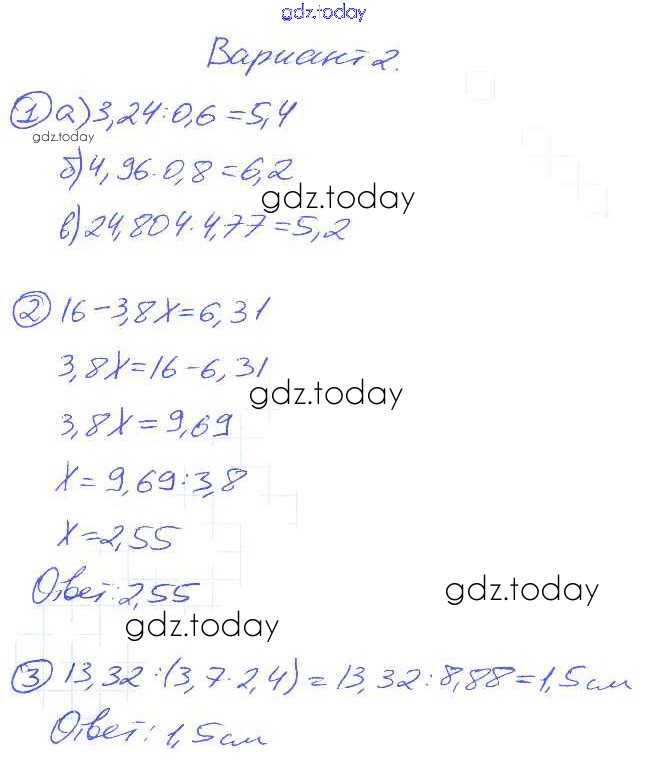 gdz.today
Вариант 2.
1 а) 3,24:0,6=5,4
gdz.today
б) 4,96·0,8=6,2
gdz.today
в) 24,804·4,77=5,2
2 16-3,8x=6,31
3,8x=16-6,31
gdz.today
3,8x=9,69
x=9,69:3,8
x=2,55
Ответ: 2,55
gdz.today
gdz.today
3 13,32:(3,7·2,4)=13,32:8,88=1,5см
Ответ: 1,5см